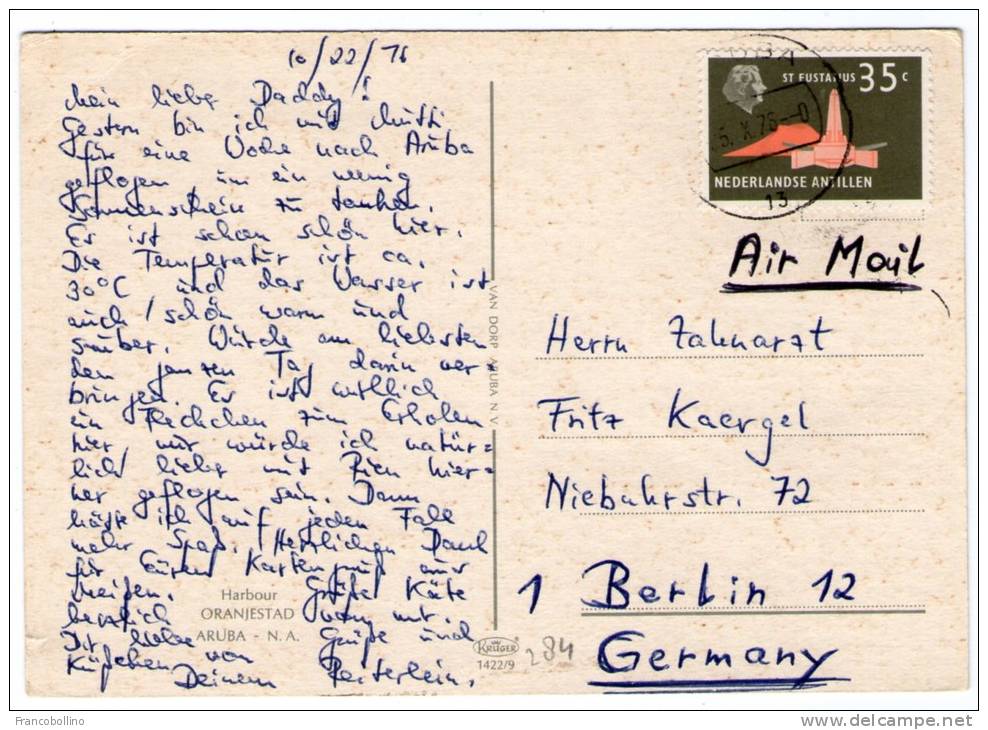 10/22/76
Mein lieber Daddy!
Gestern bin ich mit Mutti
für eine Woche nach Aruba
geflogen, um ein wenig
Sonnenschein zu tanken.
Es ist schon schön hier.
Die Temperatur ist ca.
30°C und das Wasser ist
auch schön warm und
sauber. Würde am liebsten
den ganzen Tag darin ver=
bringen. Es ist wirklich
ein Fleckchen zum Erholen
hier, nur würde ich natür=
lich lieber mit Dien hier=
her geflogen sein. Dann
hätte ich auf jeden Fall
mehr Spaß. Herzlichen Dank
für Euren Kartengruß aus
Meißen. Grüße Käte
herzlich von mir.
Dir liebe Grüße und
Küßchen von
Deinem Peiterlein.
Harbour
ORANJESTAD
ARUBA - N.A.
VAN DORP ARUBA N.V.
KRÜGER
1422/9
284
ST EUSTATIUS 35 C
NEDERLANDSE ANTILLEN
5.X.76
13
Air Mail
Herrn Zahnarzt
Fritz Kaergel
Niebuhrstr. 72
1 Berlin 12
Germany
Francobollino
www.delcampe.net